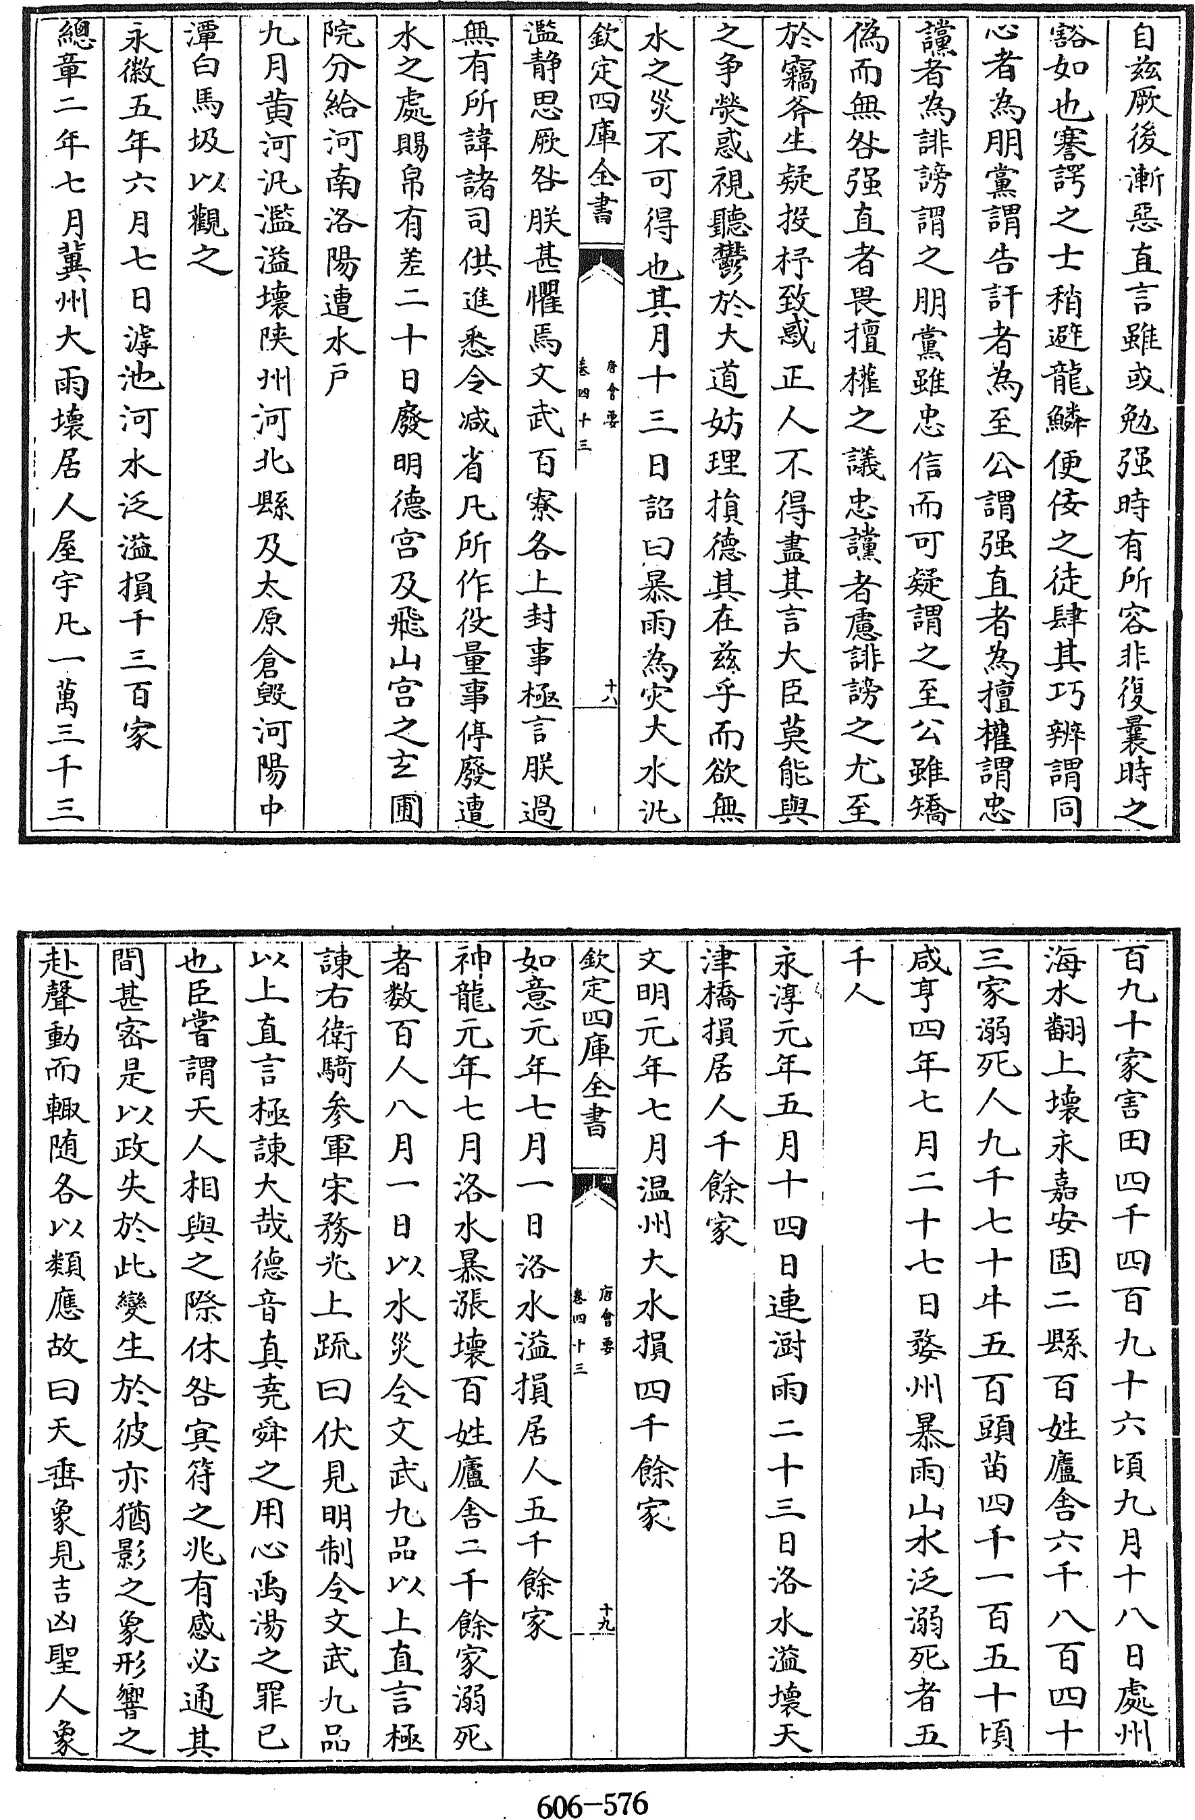 自兹厥後漸惡直言雖或勉强時有所容非復曩時之
豁如也謇諤之士稍避龍鱗便佞之徒肆其巧辨謂同
心者為朋黨謂告訐者為至公謂强直者為擅權謂忠
讜者為誹謗謂之朋黨雖忠信而可疑謂之至公雖矯
偽而無咎强直者畏擅權之議忠讜者慮誹謗之尤至
於竊斧生疑投杼致惑正人不得盡其言大臣莫能與
之争熒惑視聽鬱於大道妨理損德其在兹乎而欲無
水之災不可得也其月十三日詔曰暴雨為灾大水泚
欽定四庫全書
唐會要
卷四十三
十八
濫静思厥咎朕甚懼焉文武百寮各上封事極言朕過
無有所諱諸司供進悉令减省凡所作役量事停廢遭
水之處賜帛有差二十日廢明德宫及飛山宫之玄圃
院分給河南洛陽遭水戶
九月黄河汎濫溢壞陜州河北縣及太原倉毁河陽中
潭白馬圾以觀之
永徽五年六月七日滹池河水泛溢損千三百家
總章二年七月冀州大雨壞居人屋宇凡一萬三千三
百九十家害田四千四百九十六頃九月十八日處州
海水翻上壞永嘉安固二縣百姓廬舎六千八百四十
三家溺死人九千七十牛五百頭苗四千一百五十頃
咸亨四年七月二十七日婺州暴雨山水泛溺死者五
千人
永淳元年五月十四日連澍雨二十三日洛水溢壞天
津橋損居人千餘家
文明元年七月温州大水損四千餘家
欽定四庫全書
唐會要
卷四十三
十九
如意元年七月一日洛水溢損居人五千餘家
神龍元年七月洛水暴漲壞百姓廬舎二千餘家溺死
者数百人八月一日以水災令文武九品以上直言極
諫右衛騎參軍宋務光上疏曰伏見明制令文武九品
以上直言極諫大哉德音真堯舜之用心禹湯之罪已
也臣嘗謂天人相與之際休咎冥符之兆有感必通其
間甚宻是以政失於此變生於彼亦猶影之象形響之
赴聲動而輙随各以類應故曰天垂象見吉凶聖人象
606-576